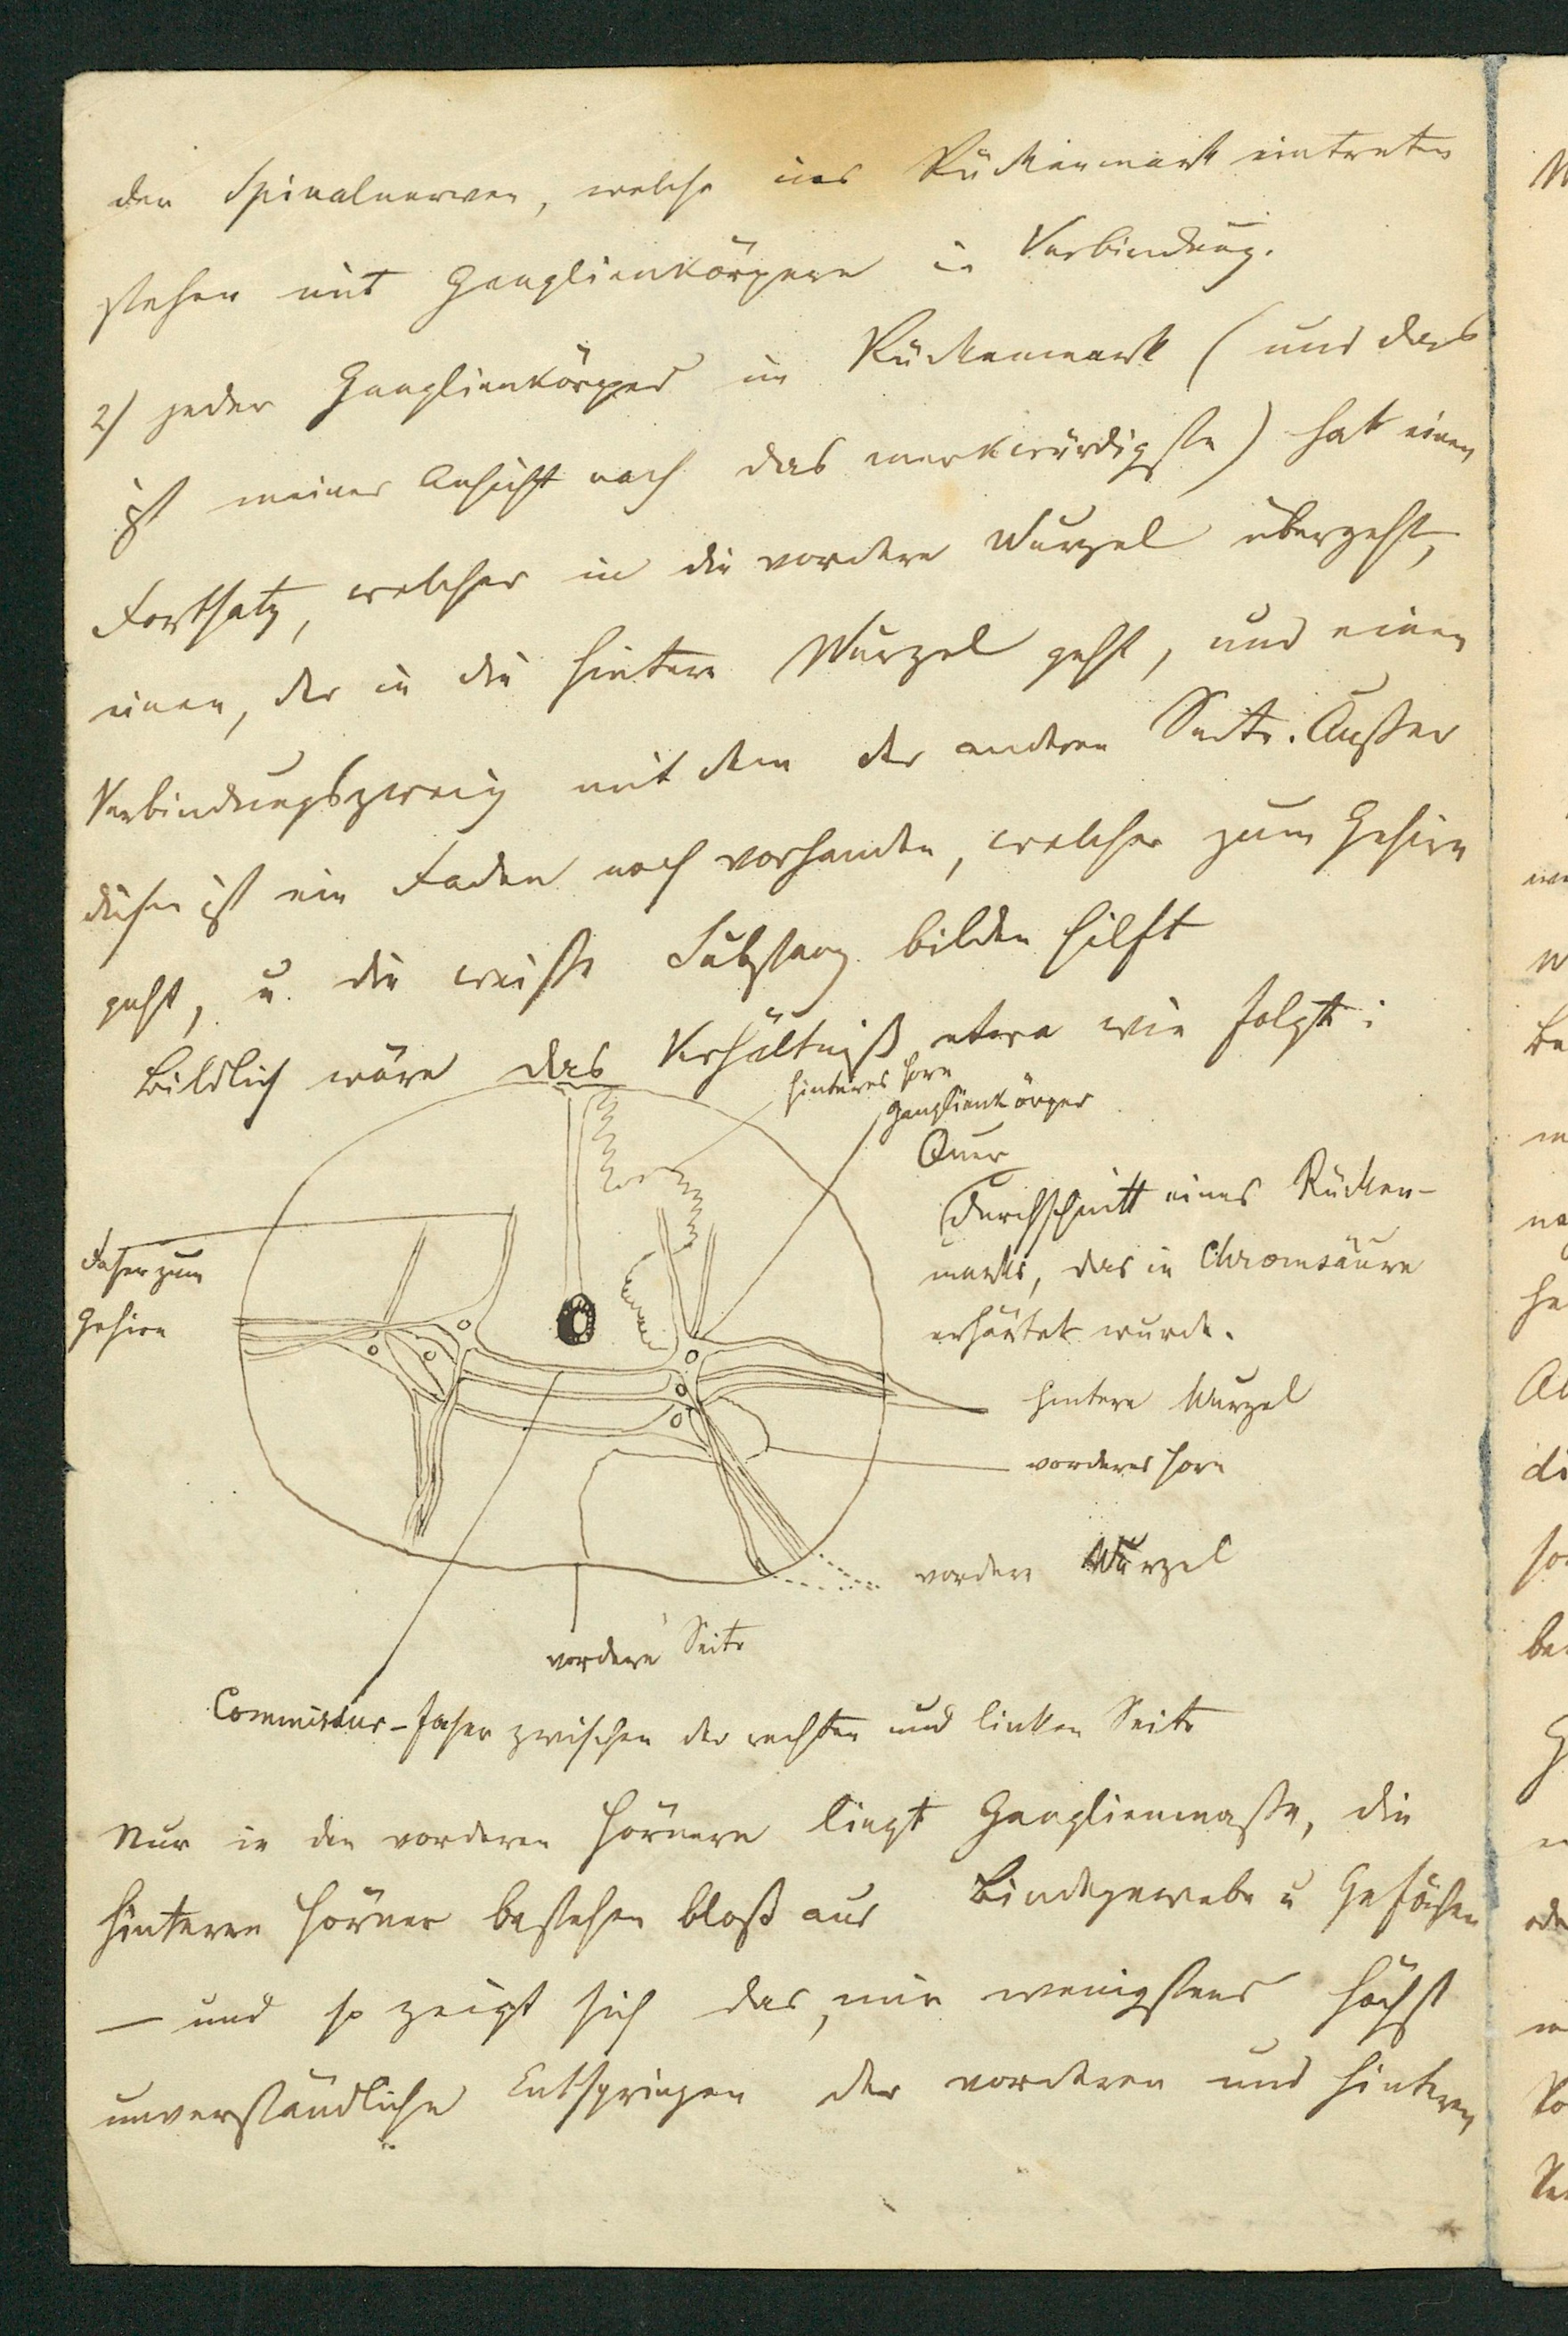 der Spinalnerven, welche ins Rückenmark eintreten
stehen mit Ganglienkörpern in Verbindung.
2) jeder Ganglienkörper im Rückenmark (und das
ist meiner Ansicht nach das merkwürdigste) hat einen
Fortsatz, welcher in die vordere Wurzel übergeht,
einen, der in die hintere Wurzel geht, und einen
Verbindungszweig mit dem der anderen Seite. Außer
diesen ist ein Faden noch vorhanden, welcher zum Gehirn
geht, u. die weiße Substanz bilden hilft
Bildlich wäre das Verhältniß etwa wie folgt:
hinteres Horn
Ganglienkörper
Quer
durchschnitt eines Rücken-
marks, das in Chromsäure
erhärtet wurde.
Faser zum
Gehirn
hintere Wurzel
vorderes Horn
vordere Wurzel
vordere Seite
Commissur-Faser zwischen der rechten und linken Seite
Nur in den vorderen Hörnern liegt Ganglienmasse, die
hinteren Hörner bestehen bloß aus Bindegewebe u Gefäßen
— und so zeigt sich das, mir wenigstens höchst
unverständliche Entspringen der vorderen und hinteren